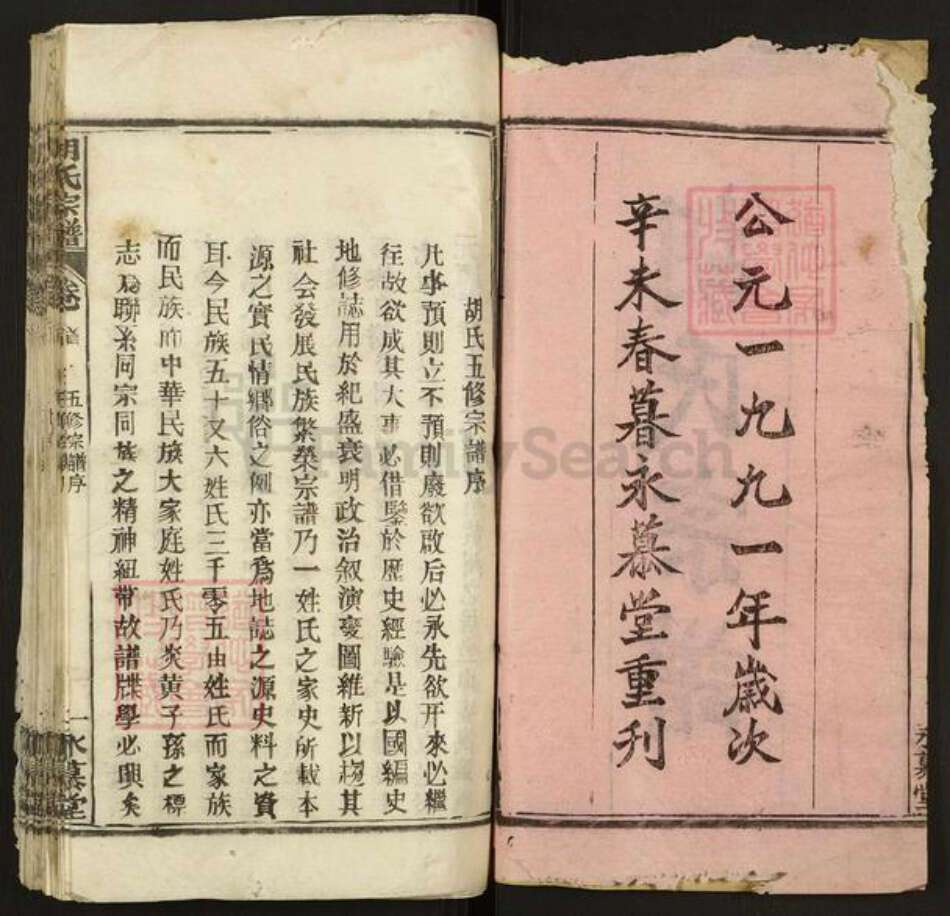 公元一九九一年歲次
辛未春暮永慕堂重刋
永慕堂
胡氏五修宗譜序
凡事預則立不預則廢欲啟后必承先欲開來必繼
往故欲成其大事必借鑒於歷史經驗是以國編史
地修誌用於紀盛衰明政治叙演變圖維新以趨其
社会發展民族繁榮宗譜乃一姓氏之家史所載本
源之實民情鄉俗之例亦當爲地誌之源史料之資
耳今民族五十又六姓氏三千零五由姓氏而家族
而民族而中華民族大家庭姓氏乃炎黃子孫之標
志爲聯系同宗同族之精神紐帶故譜牒學必興矣
胡氏宗譜
卷
五修宗譜序
一
永慕堂
FamilySearch